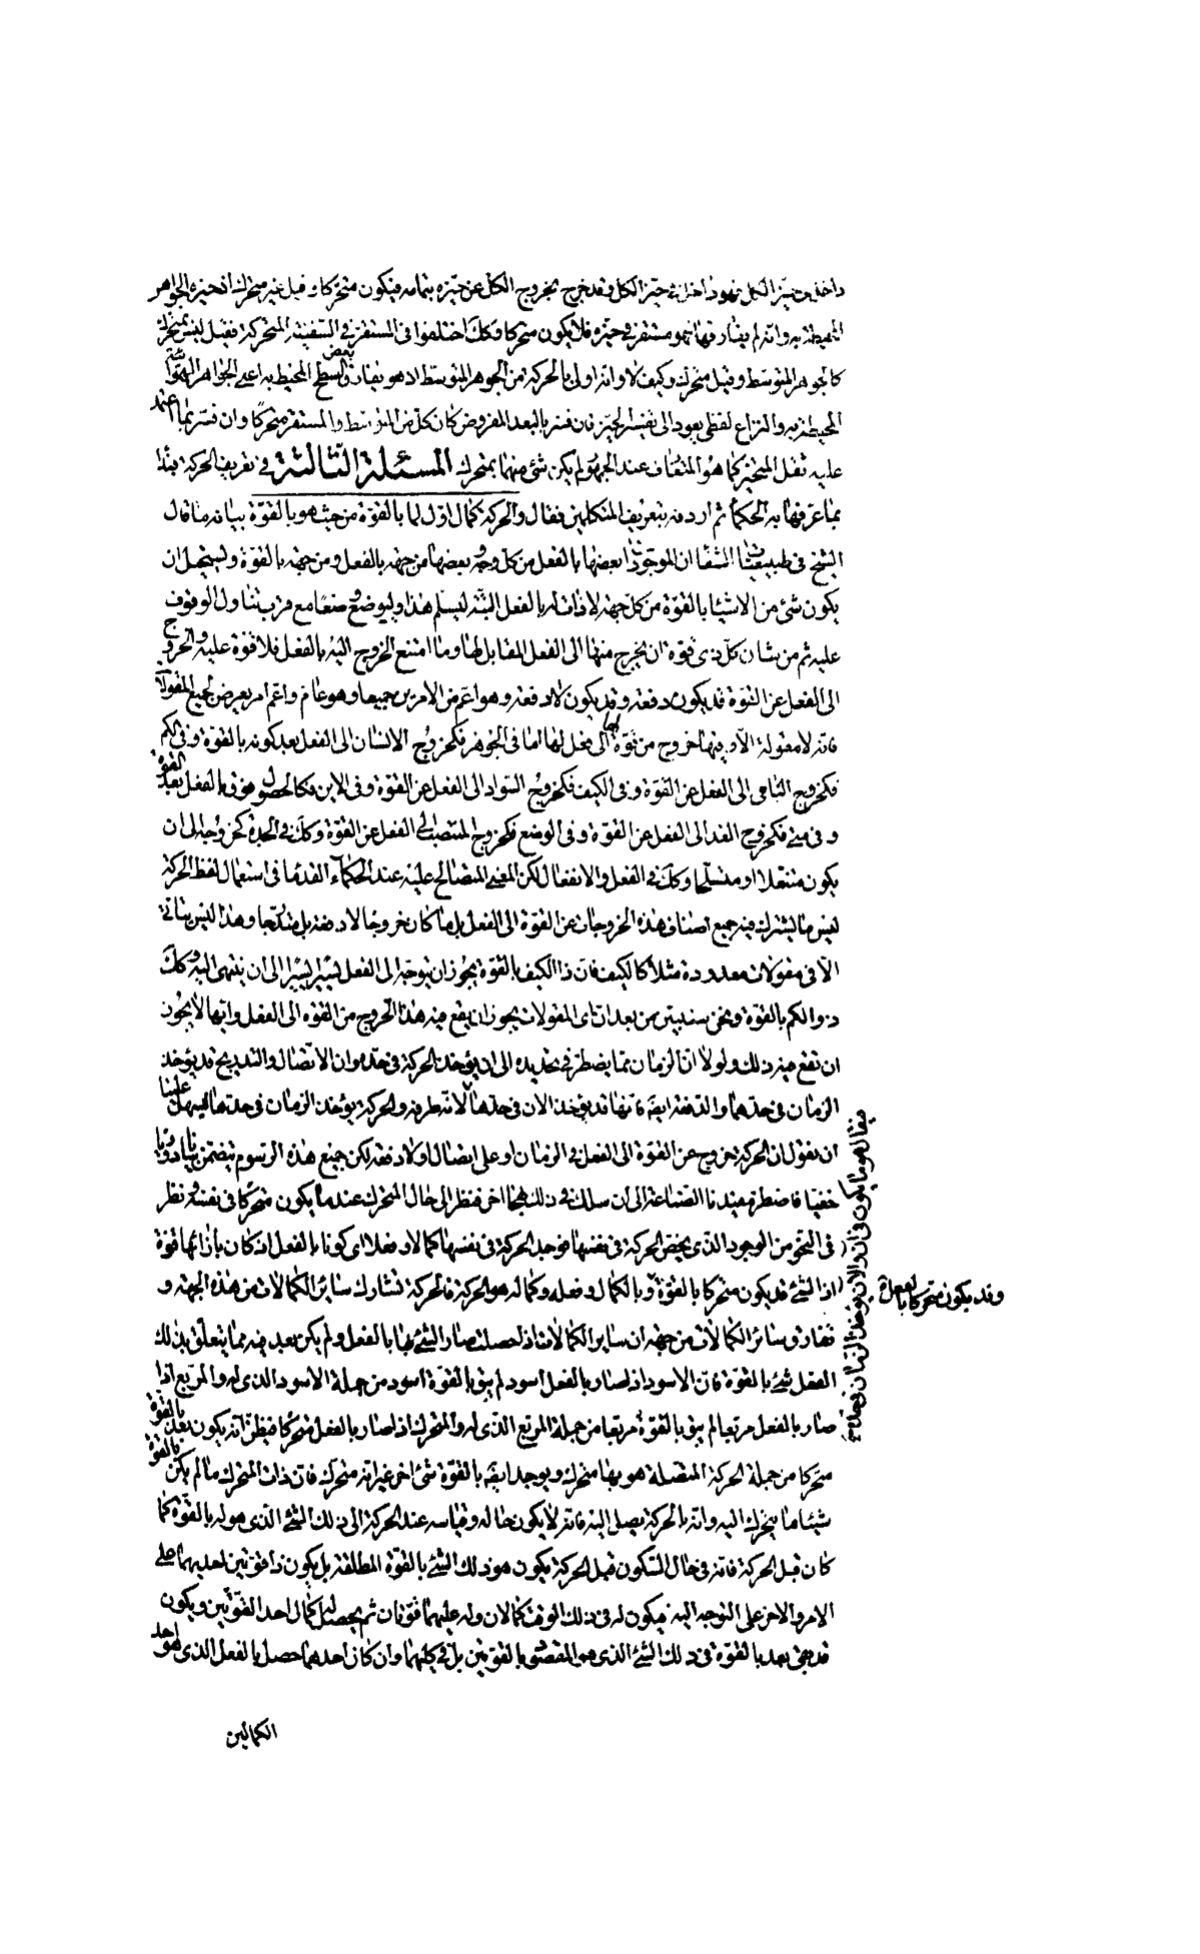 داخل في حيّز الكل فهو داخل في حيّز الكل وقد خرج بخروج الكل عن حيّزه بتمامه فيكون متحركا وقيل غير متحرك اذ حيزه الجواهر
المحيطة به وانه لم يفارقها فهو مستقر في حيزه فلا يكون متحركا وكك اختلفوا في المستقر في السفينة المتحركة فقيل ليس بمتحرك
كالجوهر المتوسط وقيل متحرك وكيف لا وانه اولى بالحركة من الجوهر المتوسط اذ هو يفارق بعض السطح المحيط به اعني الجواهر الهوائية
المحيطة به والنزاع لفظي يعود الى تفسير الحيّز فان فسّر بالبعد المفروض كان كل من المتوسط والمستقر متحركا وان فسّر بما اعتمد
عليه ثقل المتحيز كما هو المتعارف عند الجمهور لم يكن شئ منهما بمتحرك المسئلة الثّالثة في تعريف الحركة بدأ
بما عرّفها به الحكماء ثم اردفه بتعريف المتكلمين فقال والحركة كمال اوّل لما بالقوّة من حيث هو بالقوّة بيانه ما قال
الشيخ في طبيعيّات الشفا ان الموجودات بعضها بالفعل من كل وجه وبعضها من جهة بالفعل ومن جهة بالقوّة ويستحيل ان
يكون شئ من الاشيا بالقوّة من كل جهة لا ذات له بالفعل البتّة ليسلّم هذا وليوضع وضعا مع قرب تناول الوقوف
عليه ثم من شان كل ذي قوّة ان يخرج منها الى الفعل المقابل لها وما امتنع الخروج اليه بالفعل فلا قوّة عليه والخروج
الى الفعل عن القوّة قد يكون دفعة وقد يكون لا دفعة وهو اعم من الامرين جميعا وهو عام واعم امر يعرض لجميع المقولات
فانه لا مقولة الّا وفيها خروج من قوّة لها الى فعل لها امّا في الجوهر فكخروج الانسان الى الفعل بعد كونه بالقوّة وفي الكم
فكخروج النامي الى الفعل عن القوّة وفي الكيف فكخروج السواد الى الفعل عن القوّة وفي الاين فكالحصول فوق بالفعل بعد القوّة
وفي متى فكخروج الغد الى الفعل عن القوّة وفي الوضع فكخروج المنتصب الى الفعل عن القوّة وكك في الجدة كخروجه الى ان
يكون متنعّلا او متسلّحا وكك في الفعل والانفعال لكن المعنى المتصالح عليه عند الحكماء القدما في استعمال لفظ الحركة
ليس ما يشترك فيه جميع اصناف هذه الخروجات عن القوّة الى الفعل بل ما كان خروجا لا دفعة بل متدرّجا وهذا ليس يتاتى
الّا في مقولات معدودة مثلا كالكيف فان ذا الكيف بالقوّة يجوز ان يتوجّه الى الفعل يسيرا يسيرا الى ان ينتهى اليه وكك
ذو الكم بالقوّة ونحن سنبيّن من بعد ان اي المقولات يجوز ان يقع فيه هذا الخروج من القوّة الى الفعل وايها لا يجوز
ان يقع فيه ذلك ولولا ان الزمان مما يضطر في تحديده الى ان يؤخذ الحركة في حدّه وان الاتّصال والتدريج قد يؤخذ
الزمان في حدّهما والدفعة ايضا فانها قد يؤخذ الان في حدها لانه طرفه والحركة يؤخذ الزمان في حدها ليسهل علينا
ان نقول ان الحركة خروج عن القوّة الى الفعل في الزمان او على اتصال او لا دفعة لكن جميع هذه الرسوم يتضمن بيانا دوريا
خفيا فاضطر مفيدنا الصناعة الى ان سلك في ذلك نهجا اخر فنظر الى حال المتحرك عندما يكون متحركا في نفسه ونظر
في النحو من الوجود الذي يخصّ الحركة في نفسها فوجد الحركة في نفسها كمالا وفعلا اي كونا بالفعل اذ كان بازائها قوّة
اذ الشئ قد يكون متحركا بالقوّة وبالكمال وفعله وكماله هو الحركة فالحركة تشارك سائر الكمالات من هذه الجهة و
تفارق سائر الكمالات من جهة ان سائر الكمالات اذا حصلت صار الشئ بها بالفعل ولم يكن بعد فيه مما يتعلّق بذلك
الفعل شئ بالقوّة فان الاسود اذا صار بالفعل اسود لم يبق بالقوّة اسود من جملة الاسود الذي له والمربع اذا
صار بالفعل مربعا لم يبق بالقوّة مربعا من جملة المربع الذي له والمتحرك اذا صار بالفعل متحركا فيظن انه يكون بعد بالقوة
متحركا من جملة الحركة المتصلة هو بها متحرك ويوجد ايضا بالقوّة شئ اخر غير انه متحرك فان ذات المتحرك ما لم يكن بالقوة
شيئا ما يتحرك اليه وانه بالحركة يصل اليه فانه لا يكون حاله وقياسه عند الحركة الى ذلك الشئ الذي هو له بالقوّة كما
كان قبل الحركة فانه في حال السكون قبل الحركة يكون هو ذلك الشئ بالقوّة المطلقة بل يكون ذا قوّتين احديهما على
الامر والاخر على التوجه اليه فيكون له في ذلك الوقت كمالان وله عليهما قوّتان ثم يحصل له كمال احد القوّتين ويكون
قد بقى بعد بالقوّة في ذلك الشئ الذي هو المقصود بالقوّتين بل في كليهما وان كان احدهما حصل بالفعل الذي هو احد
الكمالين
فقال هو ما يكون في ان والان يؤخذ الزمان في حدّه
وقد يكون متحركا بالفعل